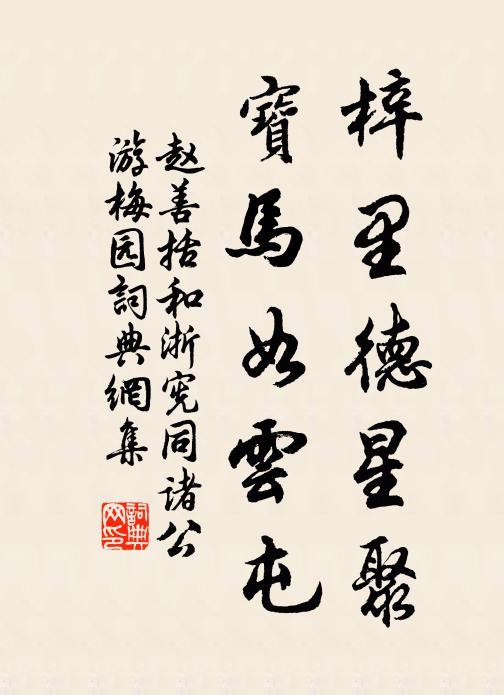 梓里德星聚
寶馬如雲屯
赵善括和浙宪同诸公
游梅园詞典網集
詞典
网印